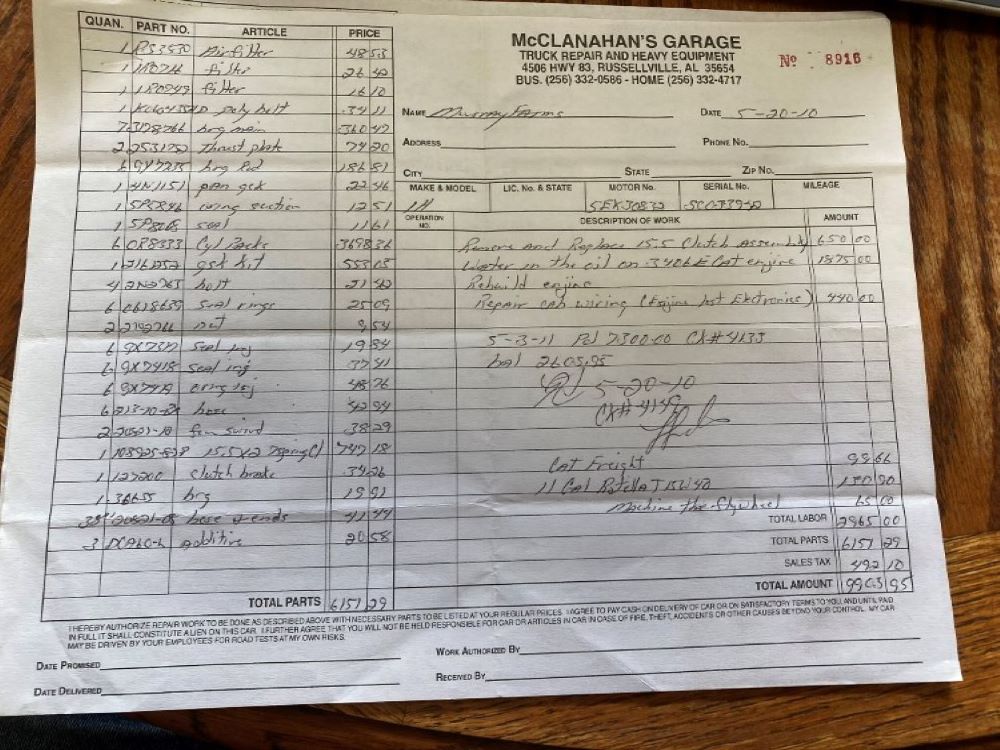 QUAN. PART NO. ARTICLE PRICE
1 Air filter 48 53
1 filter 26 42
1 1R0749 filter 16 10
1 poly belt 34 11
7 brg main 360 47
2 Thrust plate 74 20
6 brg Rod 186 81
1 4N1151 pan gsk 22 46
1 oring suction 12 51
1 5P8068 seal 11 61
6 0R8333 Cyl Packs 3698 36
1 gsk kit 553 05
4 bolt 21 42
6 seal rings 25 09
2 nut 9 54
6 9X7317 seal inj 19 84
6 9X7418 seal inj 37 41
6 9X7419 oring inj 48 76
6 hose 42 94
2 fen swivel 38 29
1 108925-82B 15.5x2 7spring Cl 747 18
1 127200 clutch brake 34 26
1 brg 19 91
hose & ends 41 44
3 additive 20 58
TOTAL PARTS 6157 29
McCLANAHAN'S GARAGE
TRUCK REPAIR AND HEAVY EQUIPMENT
4506 HWY 83, RUSSELLVILLE, AL 35654
BUS. (256) 332-0586 - HOME (256) 332-4717
No 8916
NAME Murray Farms DATE 5-20-10
ADDRESS PHONE No.
CITY STATE ZIP No.
MAKE & MODEL LIC. No. & STATE MOTOR No. SERIAL No. MILEAGE
IH
OPERATION NO. DESCRIPTION OF WORK AMOUNT
Remove and Replace 15.5 Clutch Assembly 650 00
Water in the oil on 3406E Cat engine 1875 00
Rebuild engine
Repair cab wiring (Engine lost Electronics) 440 00
5-3-11 Pd 7300.00 CK# 4133
bal 2603.95
Pd 5-20-10
CK# 4149
Cat Freight 99 66
11 Gal Rotella T 15W40 130 90
Machine the flywheel 65 00
TOTAL LABOR 2965 00
TOTAL PARTS 6157 29
SALES TAX 492 10
TOTAL AMOUNT 9903 95
I HEREBY AUTHORIZE REPAIR WORK TO BE DONE AS DESCRIBED ABOVE WITH NECESSARY PARTS TO BE LISTED AT YOUR REGULAR PRICES. I AGREE TO PAY CASH ON DELIVERY OF CAR OR ON SATISFACTORY TERMS TO YOU, AND UNTIL PAID
IN FULL IT SHALL CONSTITUTE A LIEN ON THIS CAR. I FURTHER AGREE THAT YOU WILL NOT BE HELD RESPONSIBLE FOR CAR OR ARTICLES IN CAR IN CASE OF FIRE, THEFT, ACCIDENTS OR OTHER CAUSES BEYOND YOUR CONTROL. MY CAR
MAY BE DRIVEN BY YOUR EMPLOYEES FOR ROAD TESTS AT MY OWN RISKS.
DATE PROMISED WORK AUTHORIZED BY
DATE DELIVERED RECEIVED BY